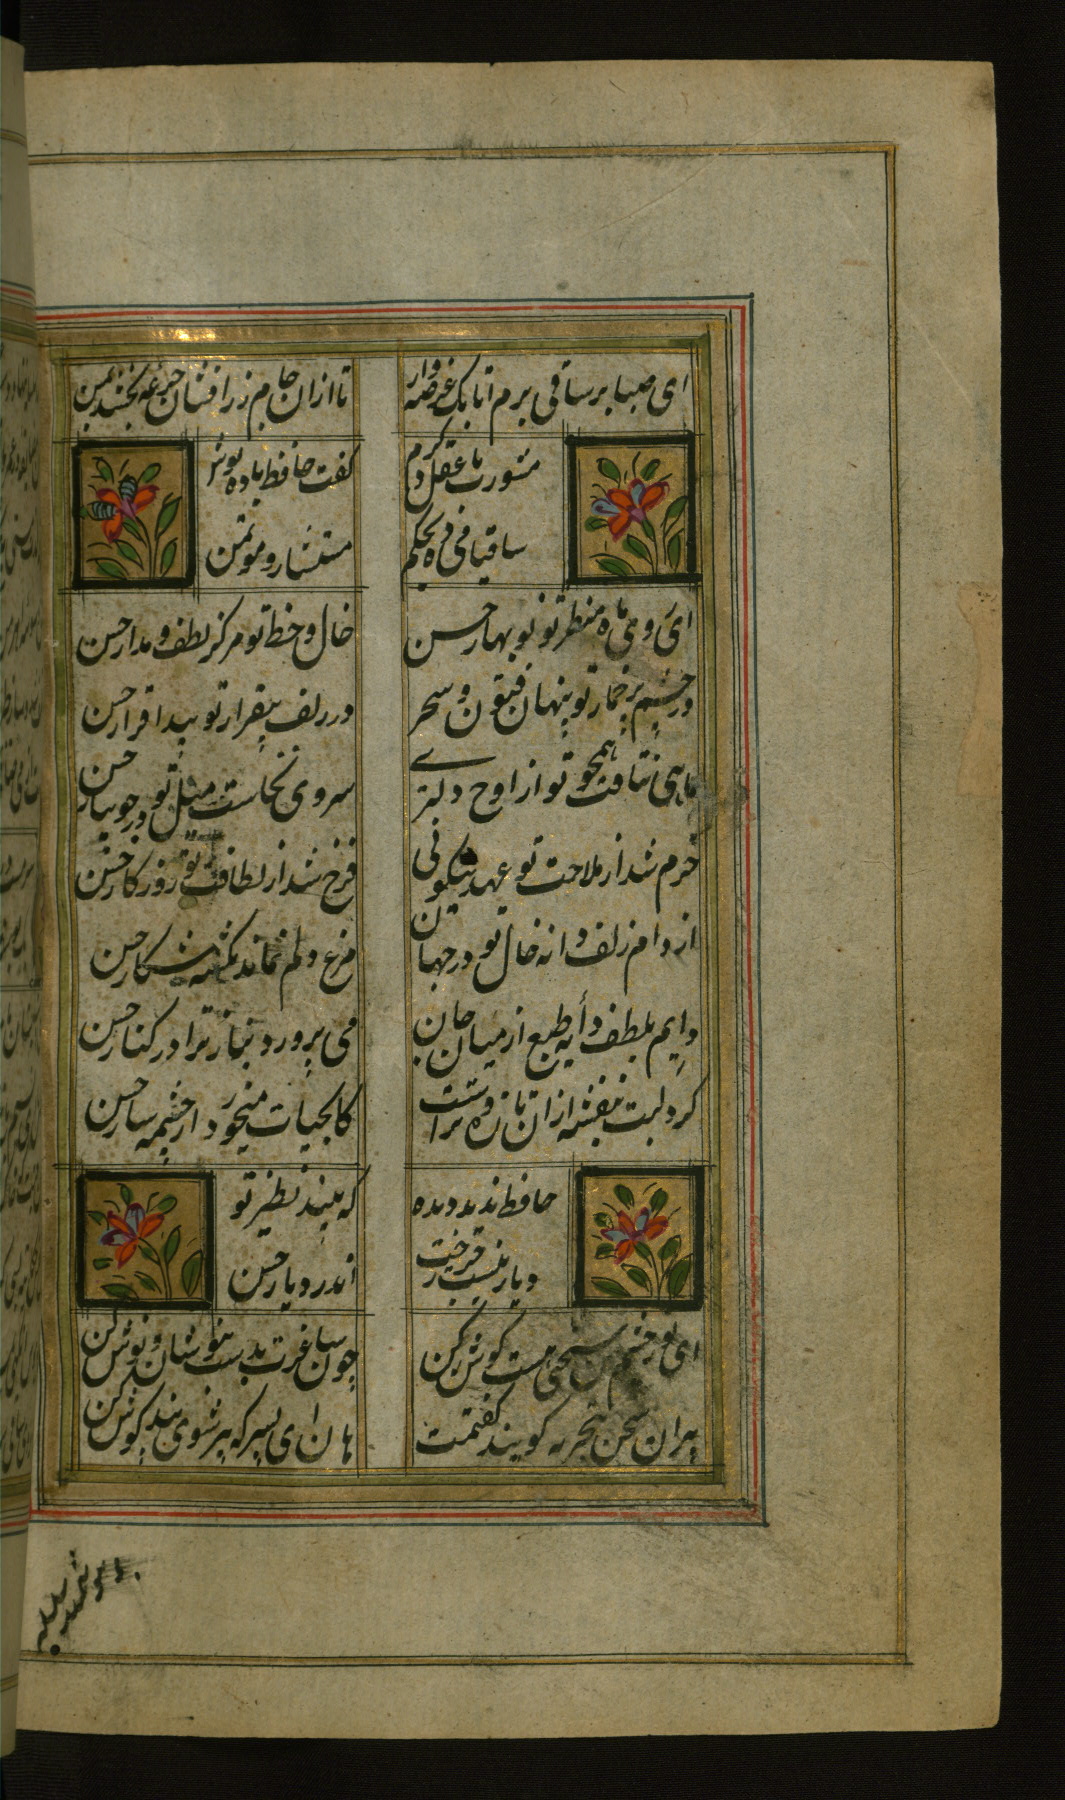 ای صبا بر ساقی بزم اتابک عرضه دار
تا ازان جام زر افشان جرعه بخشد بمن
مشورت با عقل کردم
گفت حافظ باده نوش
ساقیا می ده بحکم
مستشار موتمن
ای روی ماه منظر تو نوبهار حسن
خال و خط تو مرکز لطف و مدار حسن
در چشم پرخمار تو پنهان فنون سحر
در زلف بیقرار تو پیدا قرار حسن
ماهی نتافت همچو تو از اوج دلبری
سروی نخاست مثل تو در جویبار حسن
خرم شد از ملاحت تو عهد نیکوئی
فرخ شد از لطافت تو روزگار حسن
از دام زلف و دانه خال تو در جهان
مرغ دلم نماند نگشته شکار حسن
دایم بلطف دایه طبع از میان جان
می پرورد بناز ترا در کنار حسن
گرد لبت بنفشه ازان تازه و تر است
کابحیات میخورد از چشمه سار حسن
حافظ ندید دیده
که بیند نظیر تو
دیار نیست رخت
اندر دیار حسن
ای نور چشم من سخنی هست گوش کن
چون ساغرت پر است بنوشان و نوش کن
پیران سخن بتجربه گویند گفتمت
هان ای پسر که پیر شوی پند گوش کن